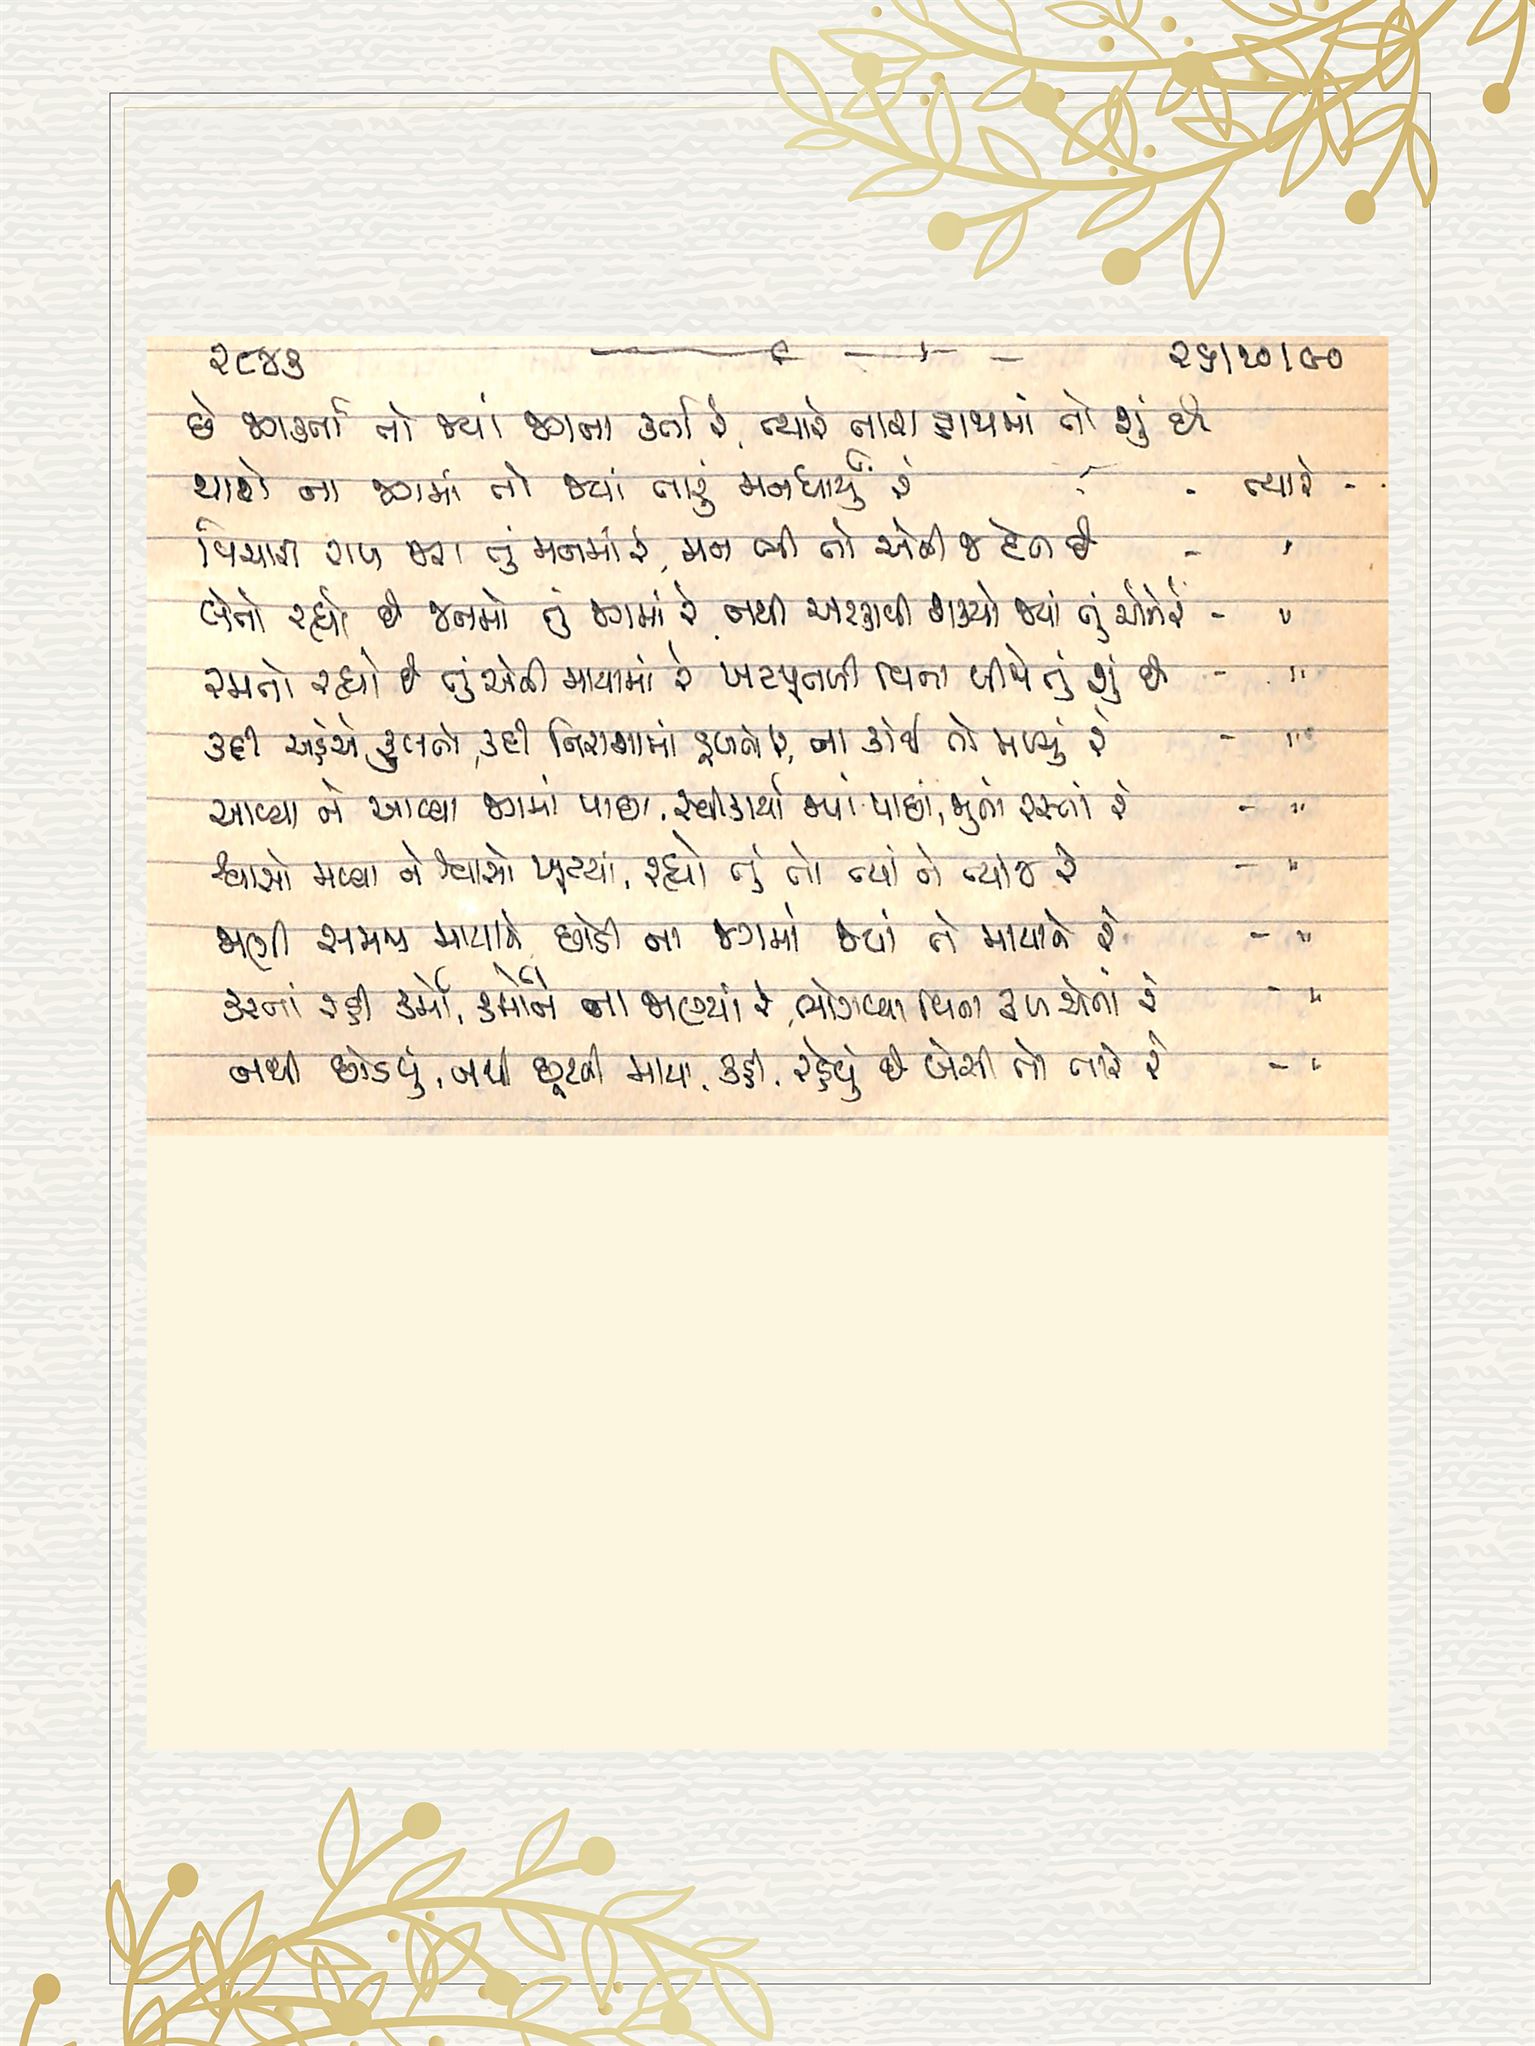 ૨૮૪૩ ૨૬/૧૦/૯૦
છે જગકર્તા તો જ્યાં જગના કર્તા રે, ત્યારે તારા હાથમાં તો શું છે
થાશે ના જગમાં તો જ્યાં તારું મનધાર્યું રે - ત્યારે -
વિચારી રાખ જરા તું મનમાં રે, મન બી તો એની જ દેન છે - "
લેતો રહ્યો છે જનમો તું જગમાં રે, નથી અટકાવી શક્યો જ્યાં તું એને રે - "
રમતો રહ્યો છે તું એની માયામાં રે ખટપૂતળી વિના બીજે તું શું છે - "
કદી અહંએ ફુલતો, કદી નિરાશામાં ડૂબતો રે, ના કોઈ તો મળ્યું રે - "
આવ્યા ને આવ્યા જગમાં પાછા, સ્વીકાર્યા જ્યાં પાછાં, જુના રસ્તાં રે - "
શ્વાસો મળ્યા ને શ્વાસો ખૂટયાં, રહ્યો તું તો ત્યાં ને ત્યાંજ રે - "
જાણી સમજી માયાને છોડી ના જગમાં જ્યાં તે માયાને રે - "
કરતાં રહી કર્મો, કર્મોને ના જાણ્યાં રે, ભોગવ્યા વિના ફળ એનાં રે - "
નથી છોડવું, નથી છૂટતી માયા, કહી, રહેવું છે બેસી તો તારે રે - "